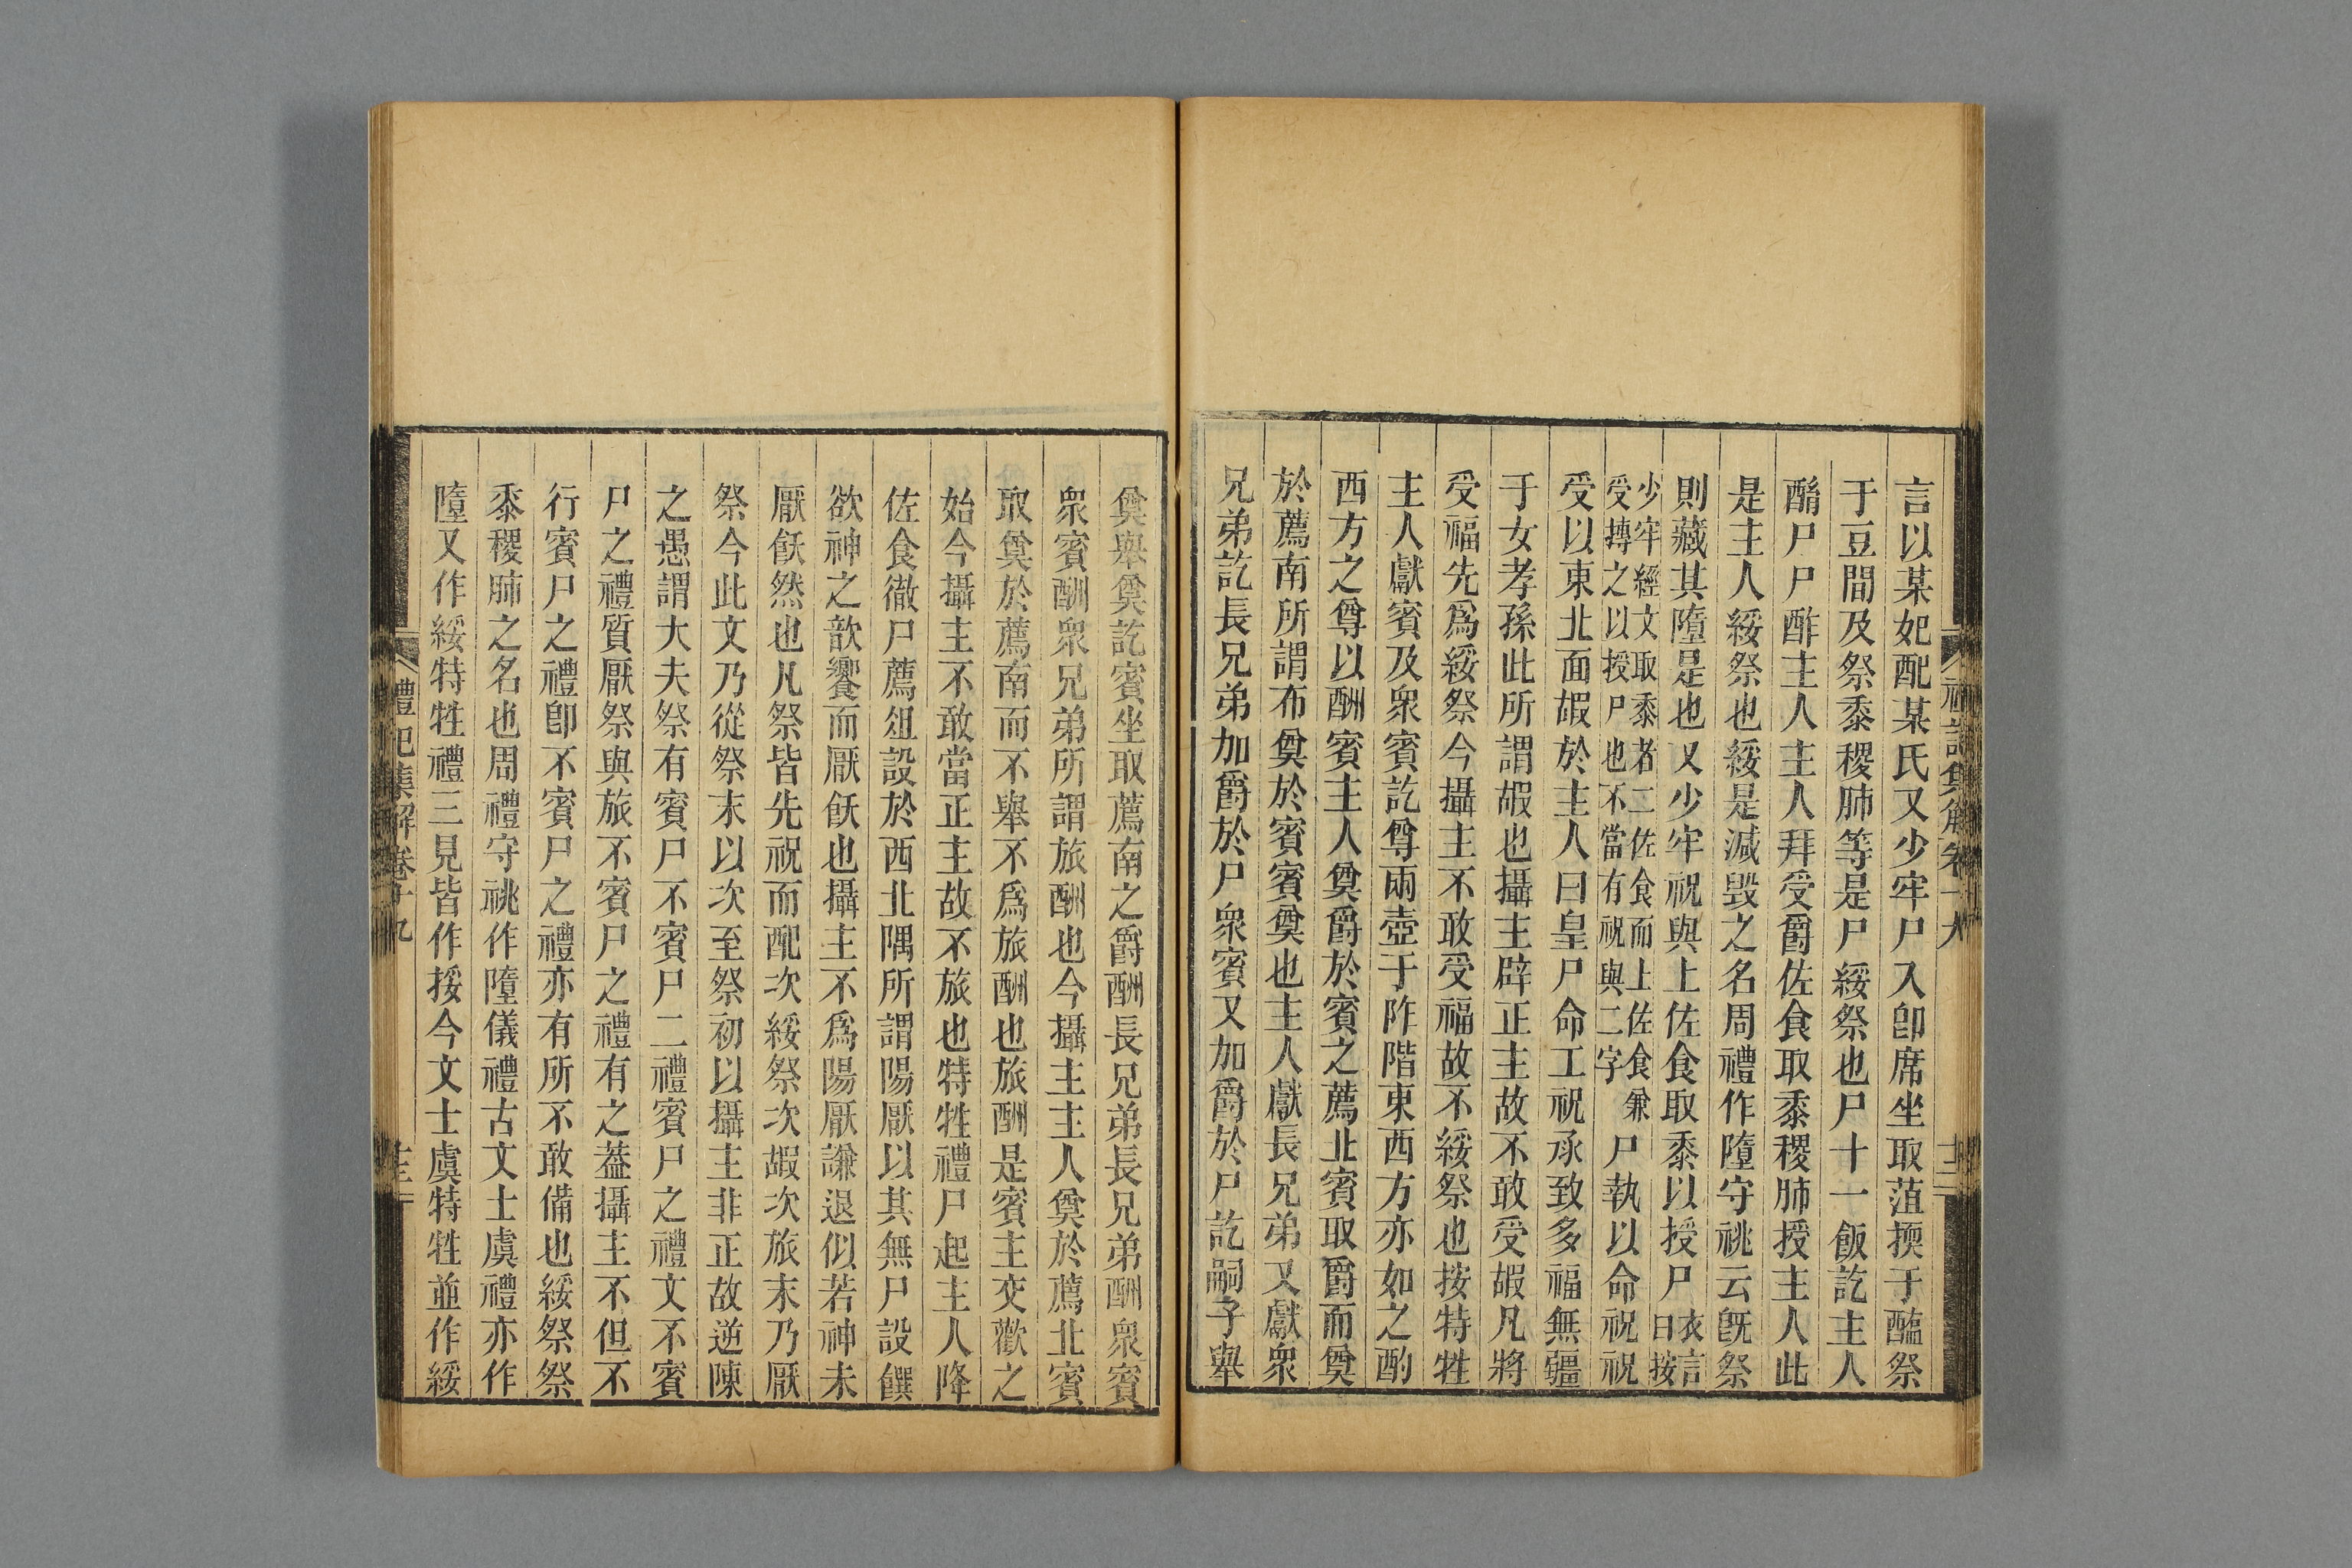 言以某妃配某氏又少牢尸入卽席坐取菹擩于醢祭
于豆間及祭黍稷肺等是尸綏祭也尸十一飯訖主人
酳尸尸酢主人主人拜受爵佐食取黍稷肺授主人此
是主人綏祭也綏是減毀之名周禮作隳守祧云旣祭
則藏其隋是也又少牢祝與上佐食取黍以授尸衣言曰按
少牢經文取黍者二佐食而上佐食兼受摶之以授尸也不當有祝與二字尸執以命祝祝
受以東北面嘏於主人曰皇尸命工祝承致多福無疆
于女孝孫此所謂嘏也攝主辟正主故不敢受嘏凡將
受福先爲綏祭今攝主不敢受福故不綏祭也按特牲
主人獻賓及衆賓訖尊兩壺于阼階東西方亦如之酌
西方之尊以酬賓主人奠爵於賓之薦北賓取爵而奠
於薦南所謂布奠於賓賓奠也主人獻長兄弟又獻衆
兄弟訖長兄弟加爵於尸衆賓又加爵於尸訖嗣子舉
奠舉奠訖賓坐取薦南之爵酬長兄弟長兄弟酬衆賓
衆賓酬衆兄弟所謂旅酬也今攝主主人奠於薦北賓
取奠於薦南而不舉不爲旅酬也旅酬是賓主交歡之
始今攝主不敢當正主故不旅也特牲禮尸起主人降
佐食徹尸薦俎設於西北隅所謂陽厭以其無尸設饌
欲神之歆饗而厭飫也攝主不爲陽厭謙退似若神未
厭飫然也凡祭皆先祝而配次綏祭次嘏次旅末乃厭
祭今此文乃從祭末以次至祭初以攝主非正故逆陳
之愚謂大夫祭有賓尸不賓尸二禮賓尸之禮文不賓
尸之禮質厭祭與旅不賓尸之禮有之葢攝主不但不
行賓尸之禮卽不賓尸之禮亦有所不敢備也綏祭祭
黍稷肺之名也周禮守祧作隳儀禮古文士虞禮亦作
隳又作綏特牲禮三見皆作挼今文士虞特牲並作綏
禮記集解卷十九